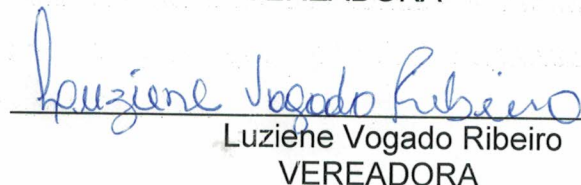 VEREADORA
Luziene Vogado Ribeiro
Luziene Vogado Ribeiro
VEREADORA